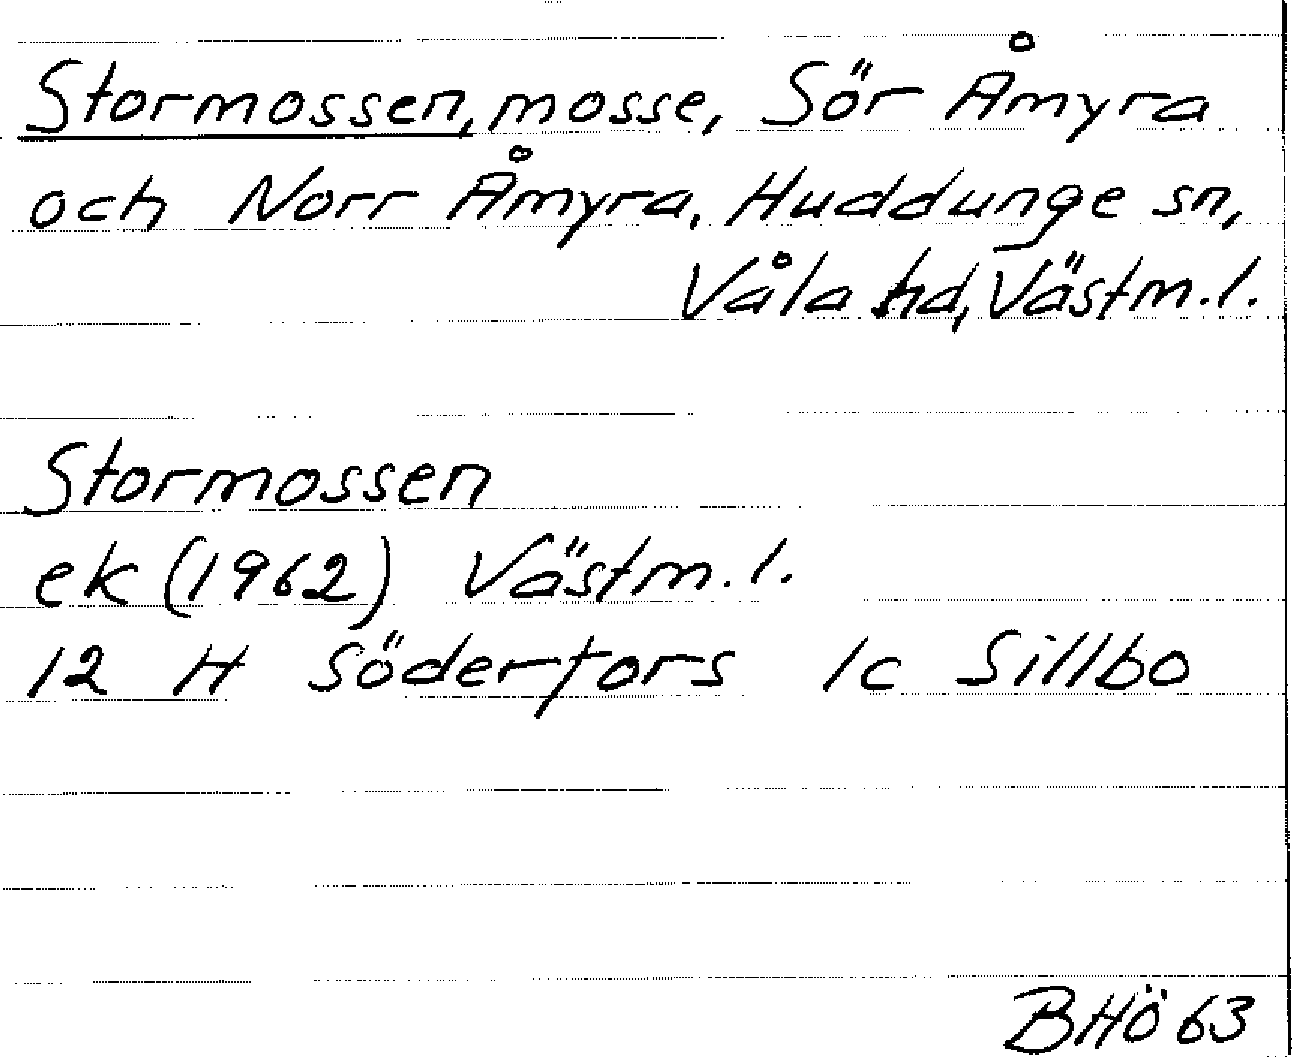 Stormossen, mosse, Sör Åmyra
och Norr Åmyra, Huddunge sn,
Våla hd, Västm.l.
Stormossen
ek (1962) Västm.l.
12 H Söderfors 1c Sillbo
BHÖ 63